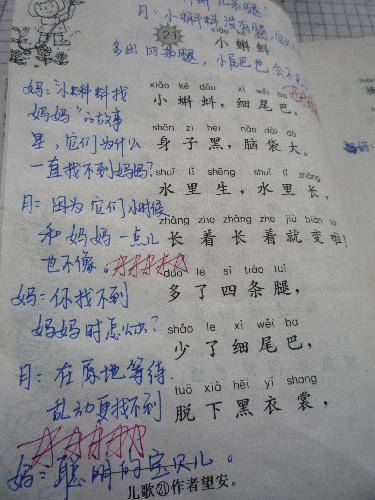 月：小蝌蚪没有腿
21
小蝌蚪
多出四条腿，小尾巴也会不
xiǎo kē dǒu xì wěi ba
小蝌蚪，细尾巴，
shēn zi hēi nǎo dài dà
身子黑，脑袋大。
shuǐ lǐ shēng shuǐ lǐ zhǎng
水里生，水里长，
zhǎng zhe zhǎng zhe jiù biàn la
长着长着就变啦！
duō le sì tiáo tuǐ
多了四条腿，
shǎo le xì wěi ba
少了细尾巴，
tuō xià hēi yī shang
脱下黑衣裳，
儿歌㉑作者望安。
妈：“小蝌蚪找
妈妈”的故事
里，它们为什么
一直找不到妈妈？
月：因为它们小时候
和妈妈一点儿
也不像。
妈：你找不到
妈妈时怎么办？
月：在原地等待.
乱动更找不到
妈：聪明的宝贝儿。